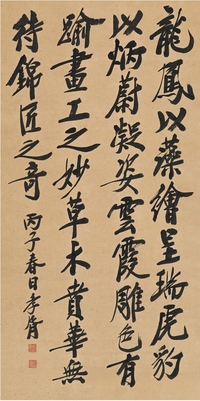 龍鳳以藻繪呈瑞虎豹
以炳蔚凝姿雲霞雕色有
踰畫工之妙草木賁華無
待錦匠之奇 丙子春日孝胥